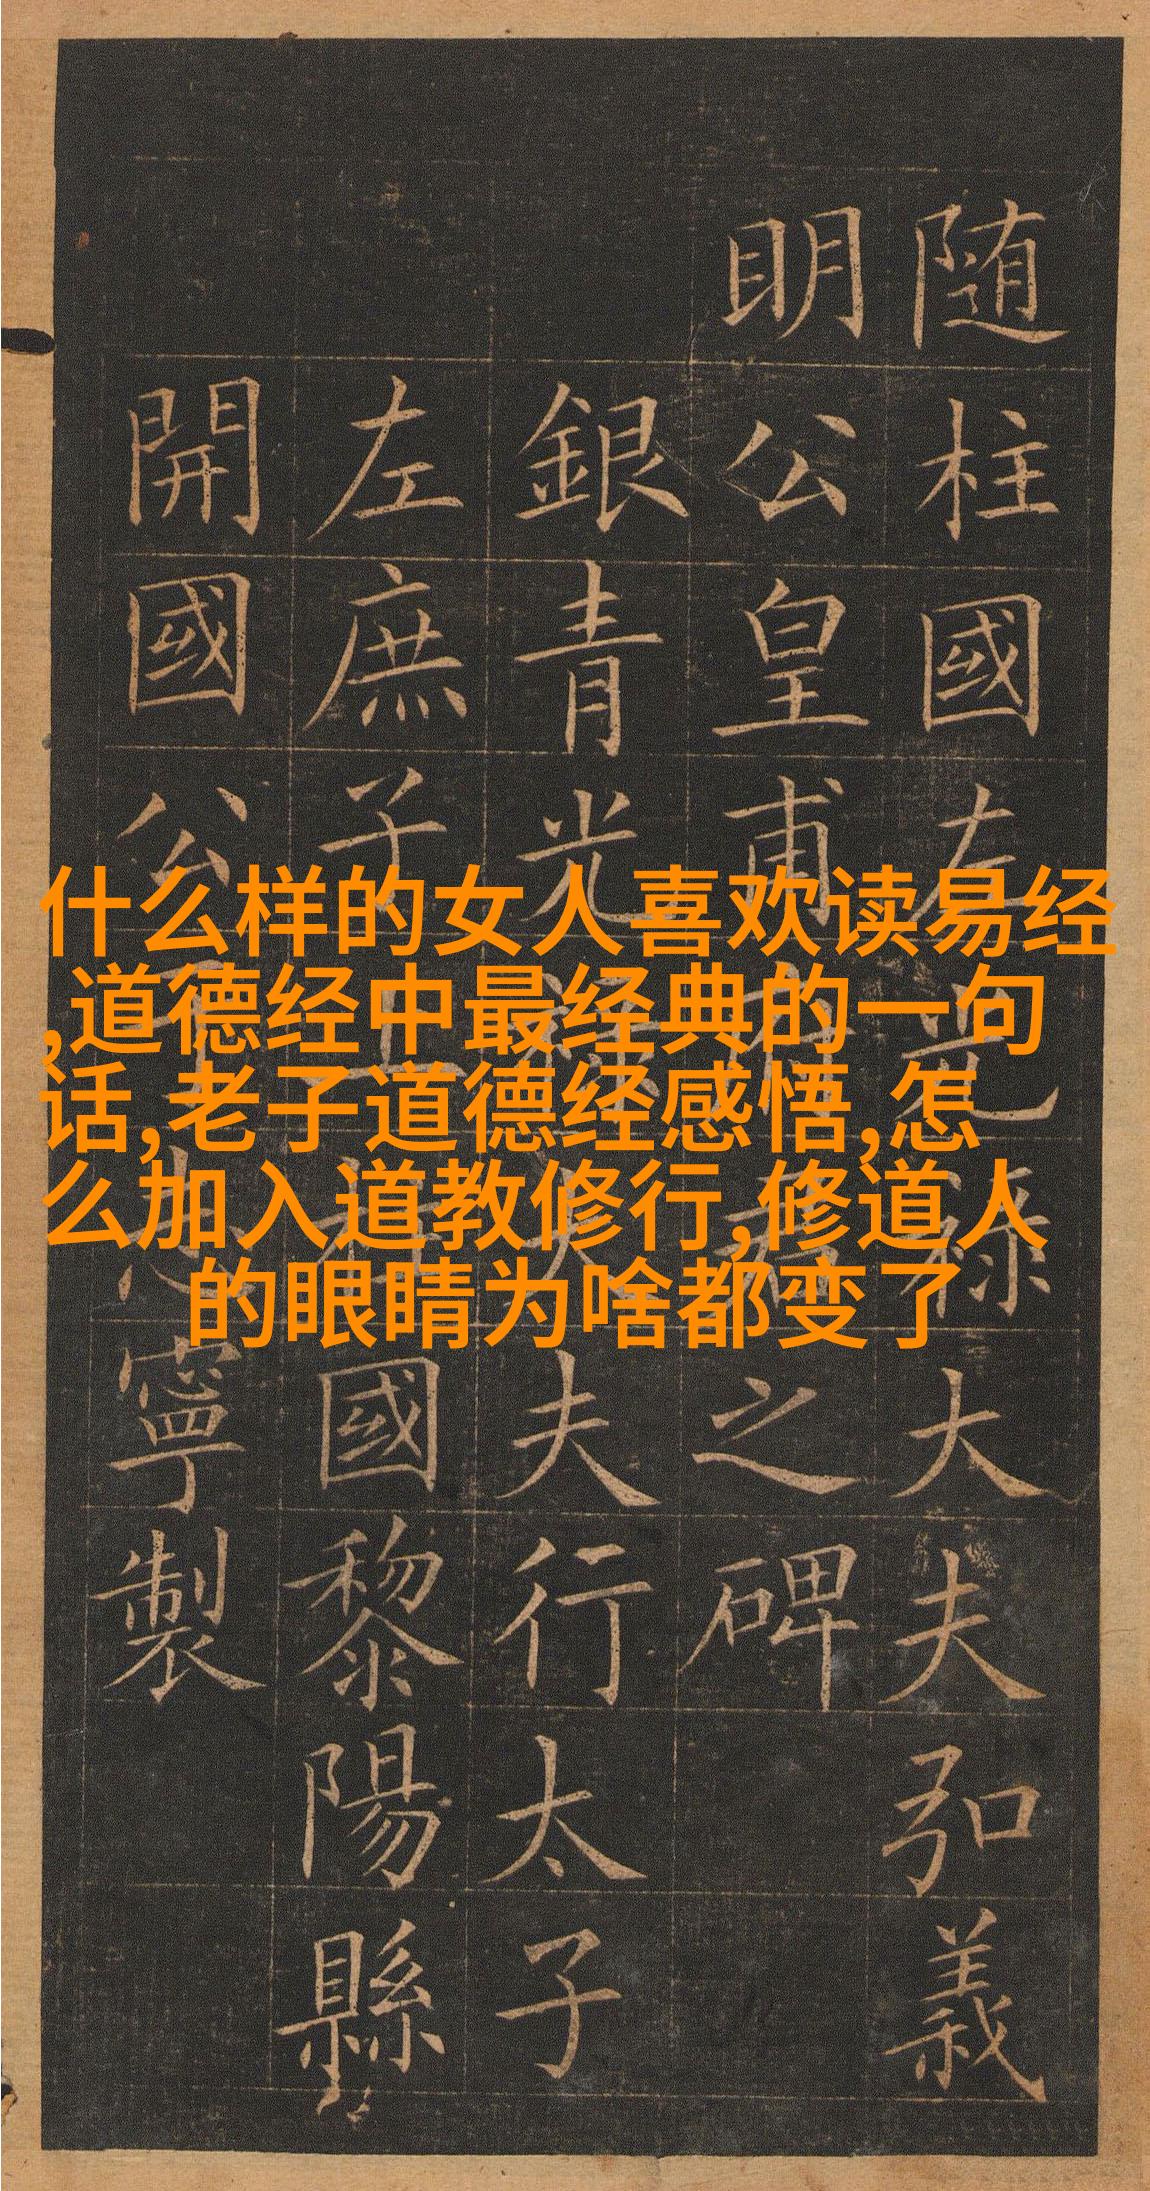 随柱國左光祿大夫弘義
明公皇甫府君之碑
銀青光祿大夫行太子
左庶子上柱國黎陽縣
開國公于志寧製
什么样的女人喜欢读易经
,道德经中最经典的一句
话,老子道德经感悟,怎
么加入道教修行,修道人
的眼睛为啥都变了